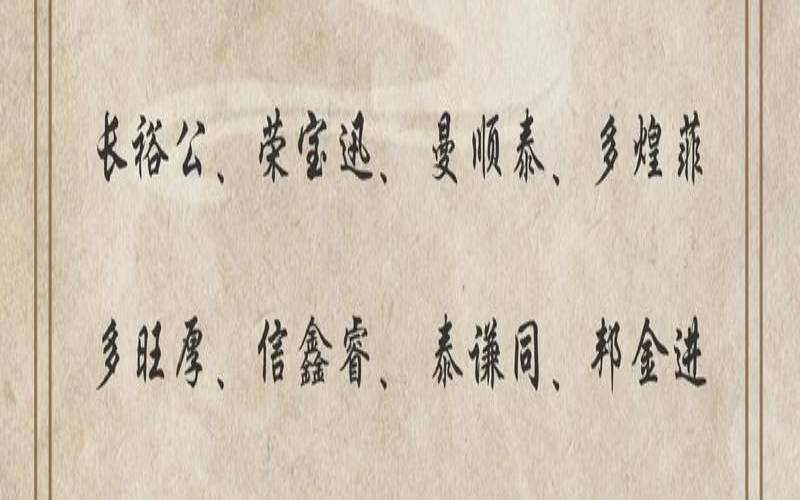 长裕公、荣宝迅、曼顺泰、多煌菲
多旺厚、信鑫睿、泰谦同、邦金进